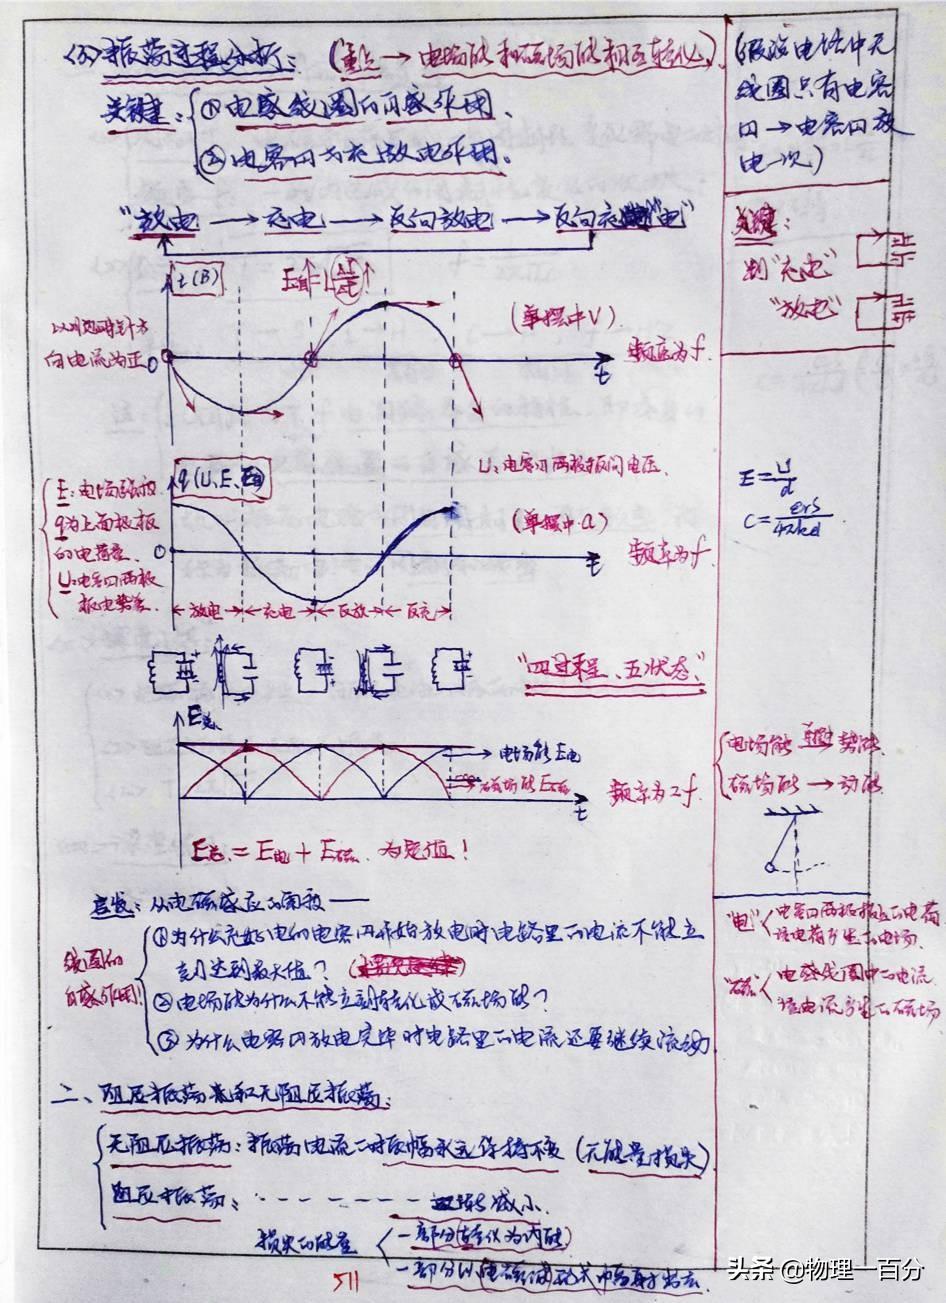 (3)振荡过程分析: (重点→电场能和磁场能相互转化)
关键: ①电感线圈的自感作用.
②电容器的充放电作用.
"放电→充电→反向放电→反向充电"
(假设电路中无
线圈只有电容
器→电容器放
电一次)
关键:
判"充电"
"放电"
i(B)
E自=L
(单摆中V)
以逆时针方
向电流为正
0
t
频率为f.
q(U、E、E电)
U:电容器两极板间电压.
(单摆中a)
E:电场强度.
q为上面极板
的电荷量.
U:电容器两极
板电势差.
0
t
频率为f
←放电→←充电→←反放→←反充→
E=U/d
C=εrS/4πkd
"四过程、五状态"
E总
→电场能E电
→磁场能E磁
t
频率为2f.
E总=E电+E磁 为定值!
电场能→势能
磁场能→动能
思考:从电磁感应的角度——
线圈的
自感作用!
①为什么充好电的电容器开始放电时电路里的电流不能立
刻达到最大值?
②电场能为什么不能立刻转化成磁场能?
③为什么电容器放电完毕时电路里的电流还要继续流动
"电" 电容器两极板上的电荷
该电荷产生的电场.
"磁" 电感线圈中的电流
该电流产生的磁场
二、阻尼振荡和无阻尼振荡:
无阻尼振荡:振荡电流的振幅永远保持不变(无能量损失)
阻尼振荡: - - - - - - - 逐渐减小.
损失的能量 一部分转化为内能)
一部分以电磁波形式辐射出去
511
头条 @物理一百分